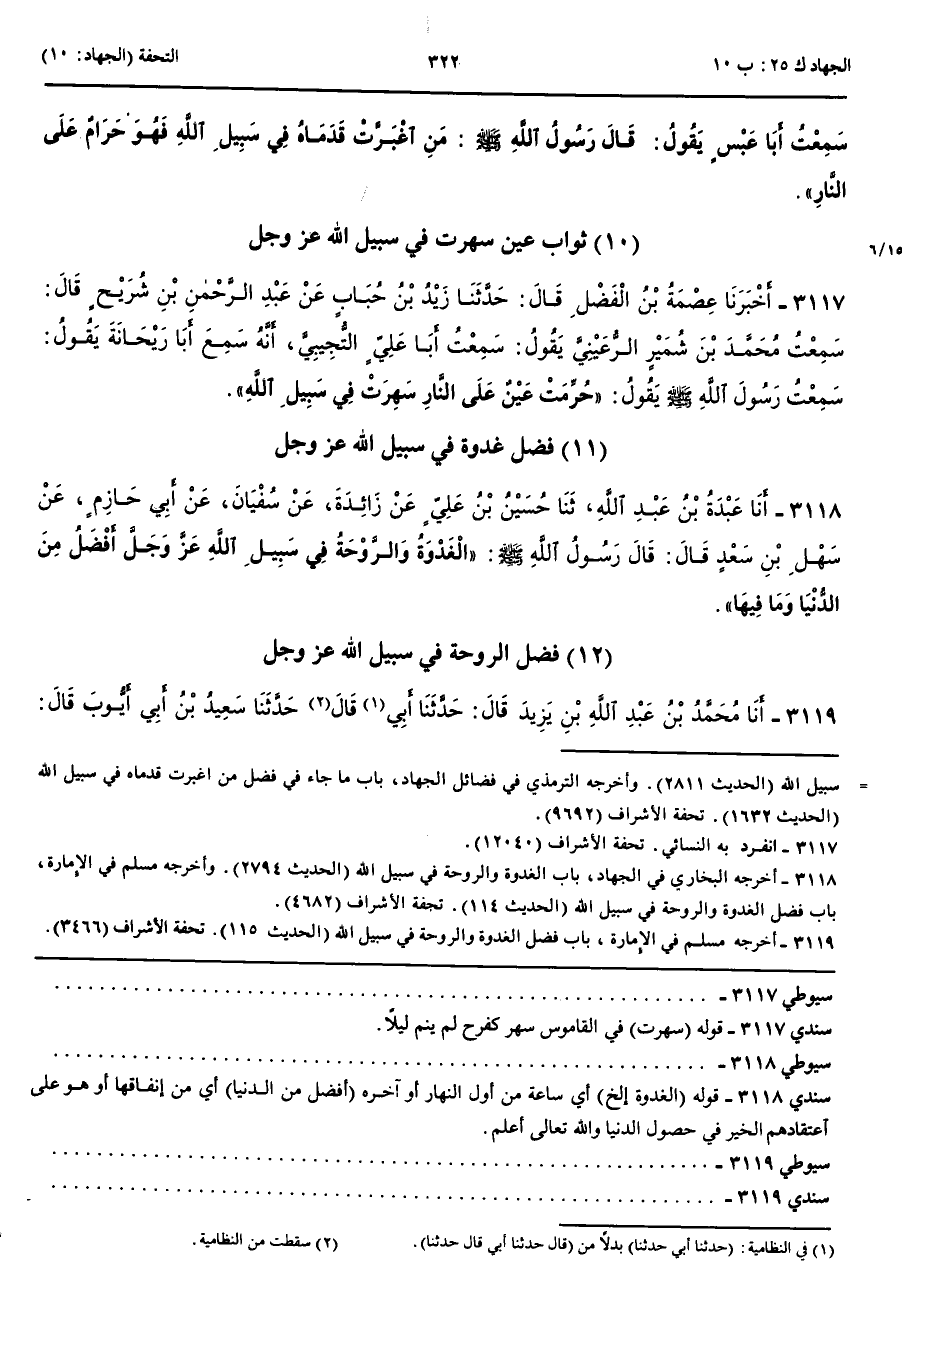 الجهاد ك ٢٥: ب ١٠
٣٢٢
التحفة (الجهاد: ١٠)
سَمِعْتُ أَبَا عَبْسٍ يَقُولُ: قَالَ رَسُولُ ٱللَّهِ ﷺ: مَنِ ٱغْبَرَّتْ قَدَمَاهُ فِي سَبِيلِ ٱللَّهِ فَهُوَ حَرَامٌ عَلَى
النَّارِ».
٦/١٥
(١٠) ثواب عين سهرت في سبيل الله عز وجل
٣١١٧ - أَخْبَرَنَا عِصْمَةُ بْنُ الْفَضْلِ قَالَ: حَدَّثَنَا زَيْدُ بْنُ حُبَابٍ عَنْ عَبْدِ الرَّحْمٰنِ بْنِ شُرَيْحٍ قَالَ:
سَمِعْتُ مُحَمَّدَ بْنَ شُمَيْرٍ الرُّعَيْنِيَّ يَقُولُ: سَمِعْتُ أَبَا عَلِيٍّ التُّجِيبِيَّ، أَنَّهُ سَمِعَ أَبَا رَيْحَانَةَ يَقُولُ:
سَمِعْتُ رَسُولَ ٱللَّهِ ﷺ يَقُولُ: «حُرِّمَتْ عَيْنٌ عَلَى النَّارِ سَهِرَتْ فِي سَبِيلِ ٱللَّهِ».
(١١) فضل غدوة في سبيل الله عز وجل
٣١١٨ - أَنَا عَبْدَةُ بْنُ عَبْدِ ٱللَّهِ، ثَنَا حُسَيْنُ بْنُ عَلِيٍّ عَنْ زَائِدَةَ، عَنْ سُفْيَانَ، عَنْ أَبِي حَازِمٍ، عَنْ
سَهْلِ بْنِ سَعْدٍ قَالَ: قَالَ رَسُولُ ٱللَّهِ ﷺ: «الْغَدْوَةُ وَالرَّوْحَةُ فِي سَبِيلِ ٱللَّهِ عَزَّ وَجَلَّ أَفْضَلُ مِنَ
الدُّنْيَا وَمَا فِيهَا».
(١٢) فضل الروحة في سبيل الله عز وجل
٣١١٩ - أَنَا مُحَمَّدُ بْنُ عَبْدِ ٱللَّهِ بْنِ يَزِيدَ قَالَ: حَدَّثَنَا أَبِي(١) قَالَ(٢) حَدَّثَنَا سَعِيدُ بْنُ أَبِي أَيُّوبَ قَالَ:
= سبيل الله (الحديث ٢٨١١). وأخرجه الترمذي في فضائل الجهاد، باب ما جاء في فضل من اغبرت قدماه في سبيل الله
(الحديث ١٦٣٢). تحفة الأشراف (٩٦٩٢).
٣١١٧ - انفرد به النسائي. تحفة الأشراف (١٢٠٤٠).
٣١١٨ - أخرجه البخاري في الجهاد، باب الغدوة والروحة في سبيل الله (الحديث ٢٧٩٤). وأخرجه مسلم في الإمارة،
باب فضل الغدوة والروحة في سبيل الله (الحديث ١١٤). تحفة الأشراف (٤٦٨٢).
٣١١٩ - أخرجه مسلم في الإمارة، باب فضل الغدوة والروحة في سبيل الله (الحديث ١١٥). تحفة الأشراف (٣٤٦٦).
سيوطي ٣١١٧ - ........................................
سندي ٣١١٧ - قوله (سهرت) في القاموس سهر كفرح لم ينم ليلًا.
سيوطي ٣١١٨ - ........................................
سندي ٣١١٨ - قوله (الغدوة إلخ) أي ساعة من أول النهار أو آخره (أفضل من الدنيا) أي من إنفاقها أو هو على
ٱعتقادهم الخير في حصول الدنيا والله تعالى أعلم.
سيوطي ٣١١٩ - ........................................
سندي ٣١١٩ - ........................................
(١) في النظامية: (حدثنا أبي حدثنا) بدلًا من (قال حدثنا أبي قال حدثنا).
(٢) سقطت من النظامية.